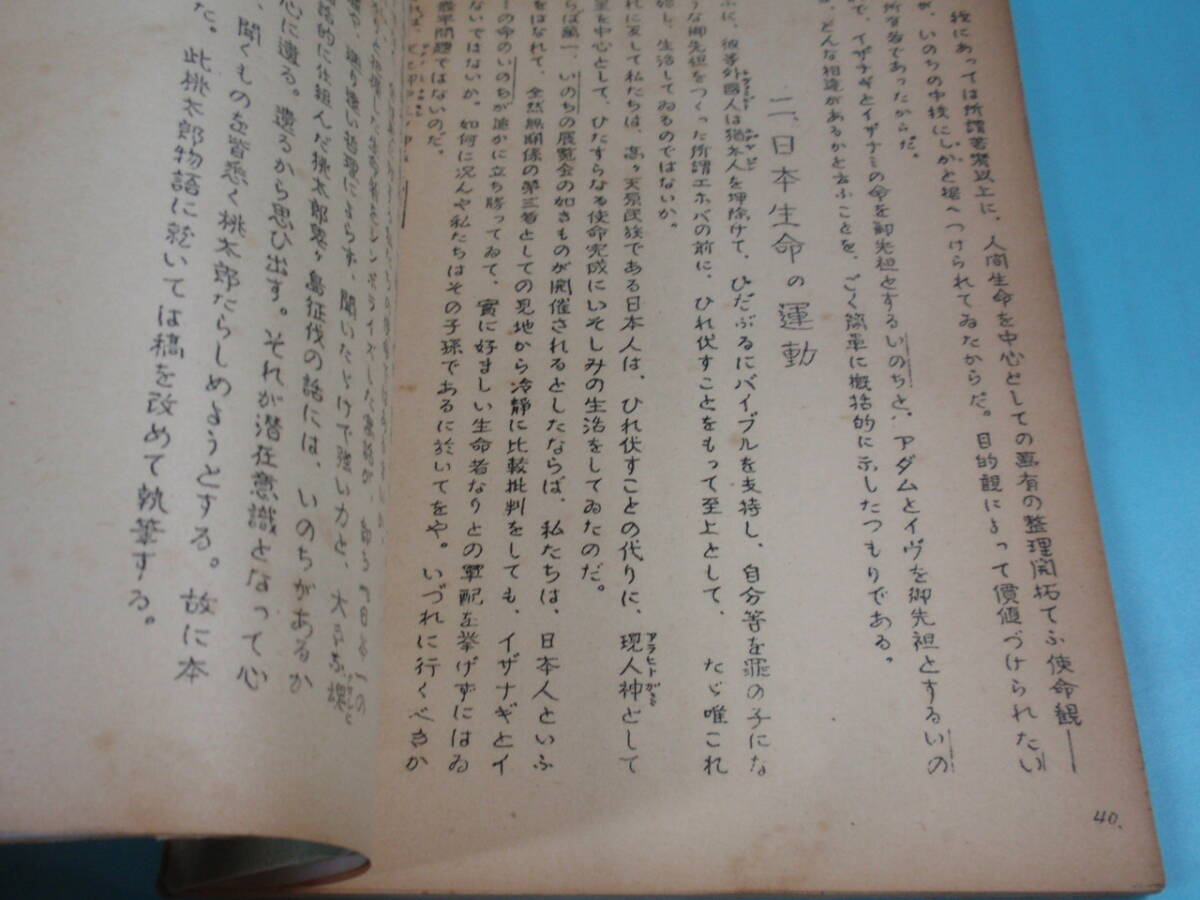 我にあっては所謂若溌以上に、人间生命を中心としての萬有の整理開拓てふ使命観――
が、いのちの中核にしかと据へつけられてゐたからだ。目的観によって價値づけられたい
所有者であったからだ。
で、イザナギとイザナミの命を御先祖とするいのちと、アダムとイヴを御先祖とするいの
、どんな相違があるかと云ふことを、ごく簡単に概括的に示したつもりである。
二、日本生命の運動
ふに、彼等外國人は猶太人を押除けて、ひたぶるにバイブルを支持し、自分等を罪の子にな
うな御先祖をつくった所謂エホバの前に、ひれ伏すことをもって至上として、たゞ唯これ
始し、生活してゐるのではないか。
れに反して私たちは、高ヶ天原民族である日本人は、ひれ伏すことの代りに、現人神として
アラヒトガミ
を中心として、ひたすらなる使命完成にいそしみの生活をしてゐたのだ。
らば萬一、いのちの展覧会の如きものが開催されるとしたならば、私たちは、日本人といふ
をはなれて、全然無関係の第三者としての見地から冷静に比較批判をしても、イザナギとイ
の命のいのちが遥かに立ち勝ってゐて、實に好ましい生命者なりとの軍配を挙げずにはゐ
ないではないか。如何に況んや私たちはその子孫であるに於いてをや。いづれに行くべきか
問題ではないのだ。
、聞いたゞけで強い力と、大きな
話的に仕組んだ桃太郎鬼ヶ島征伐の話には、いのちがあるか
心に遺る。遺るから思ひ出す。それが潜在意識となって心
、聞くものを皆悉く桃太郎たらしめようとする。故に本
た。此桃太郎物語に就いては稿を改めて執筆する。
40.